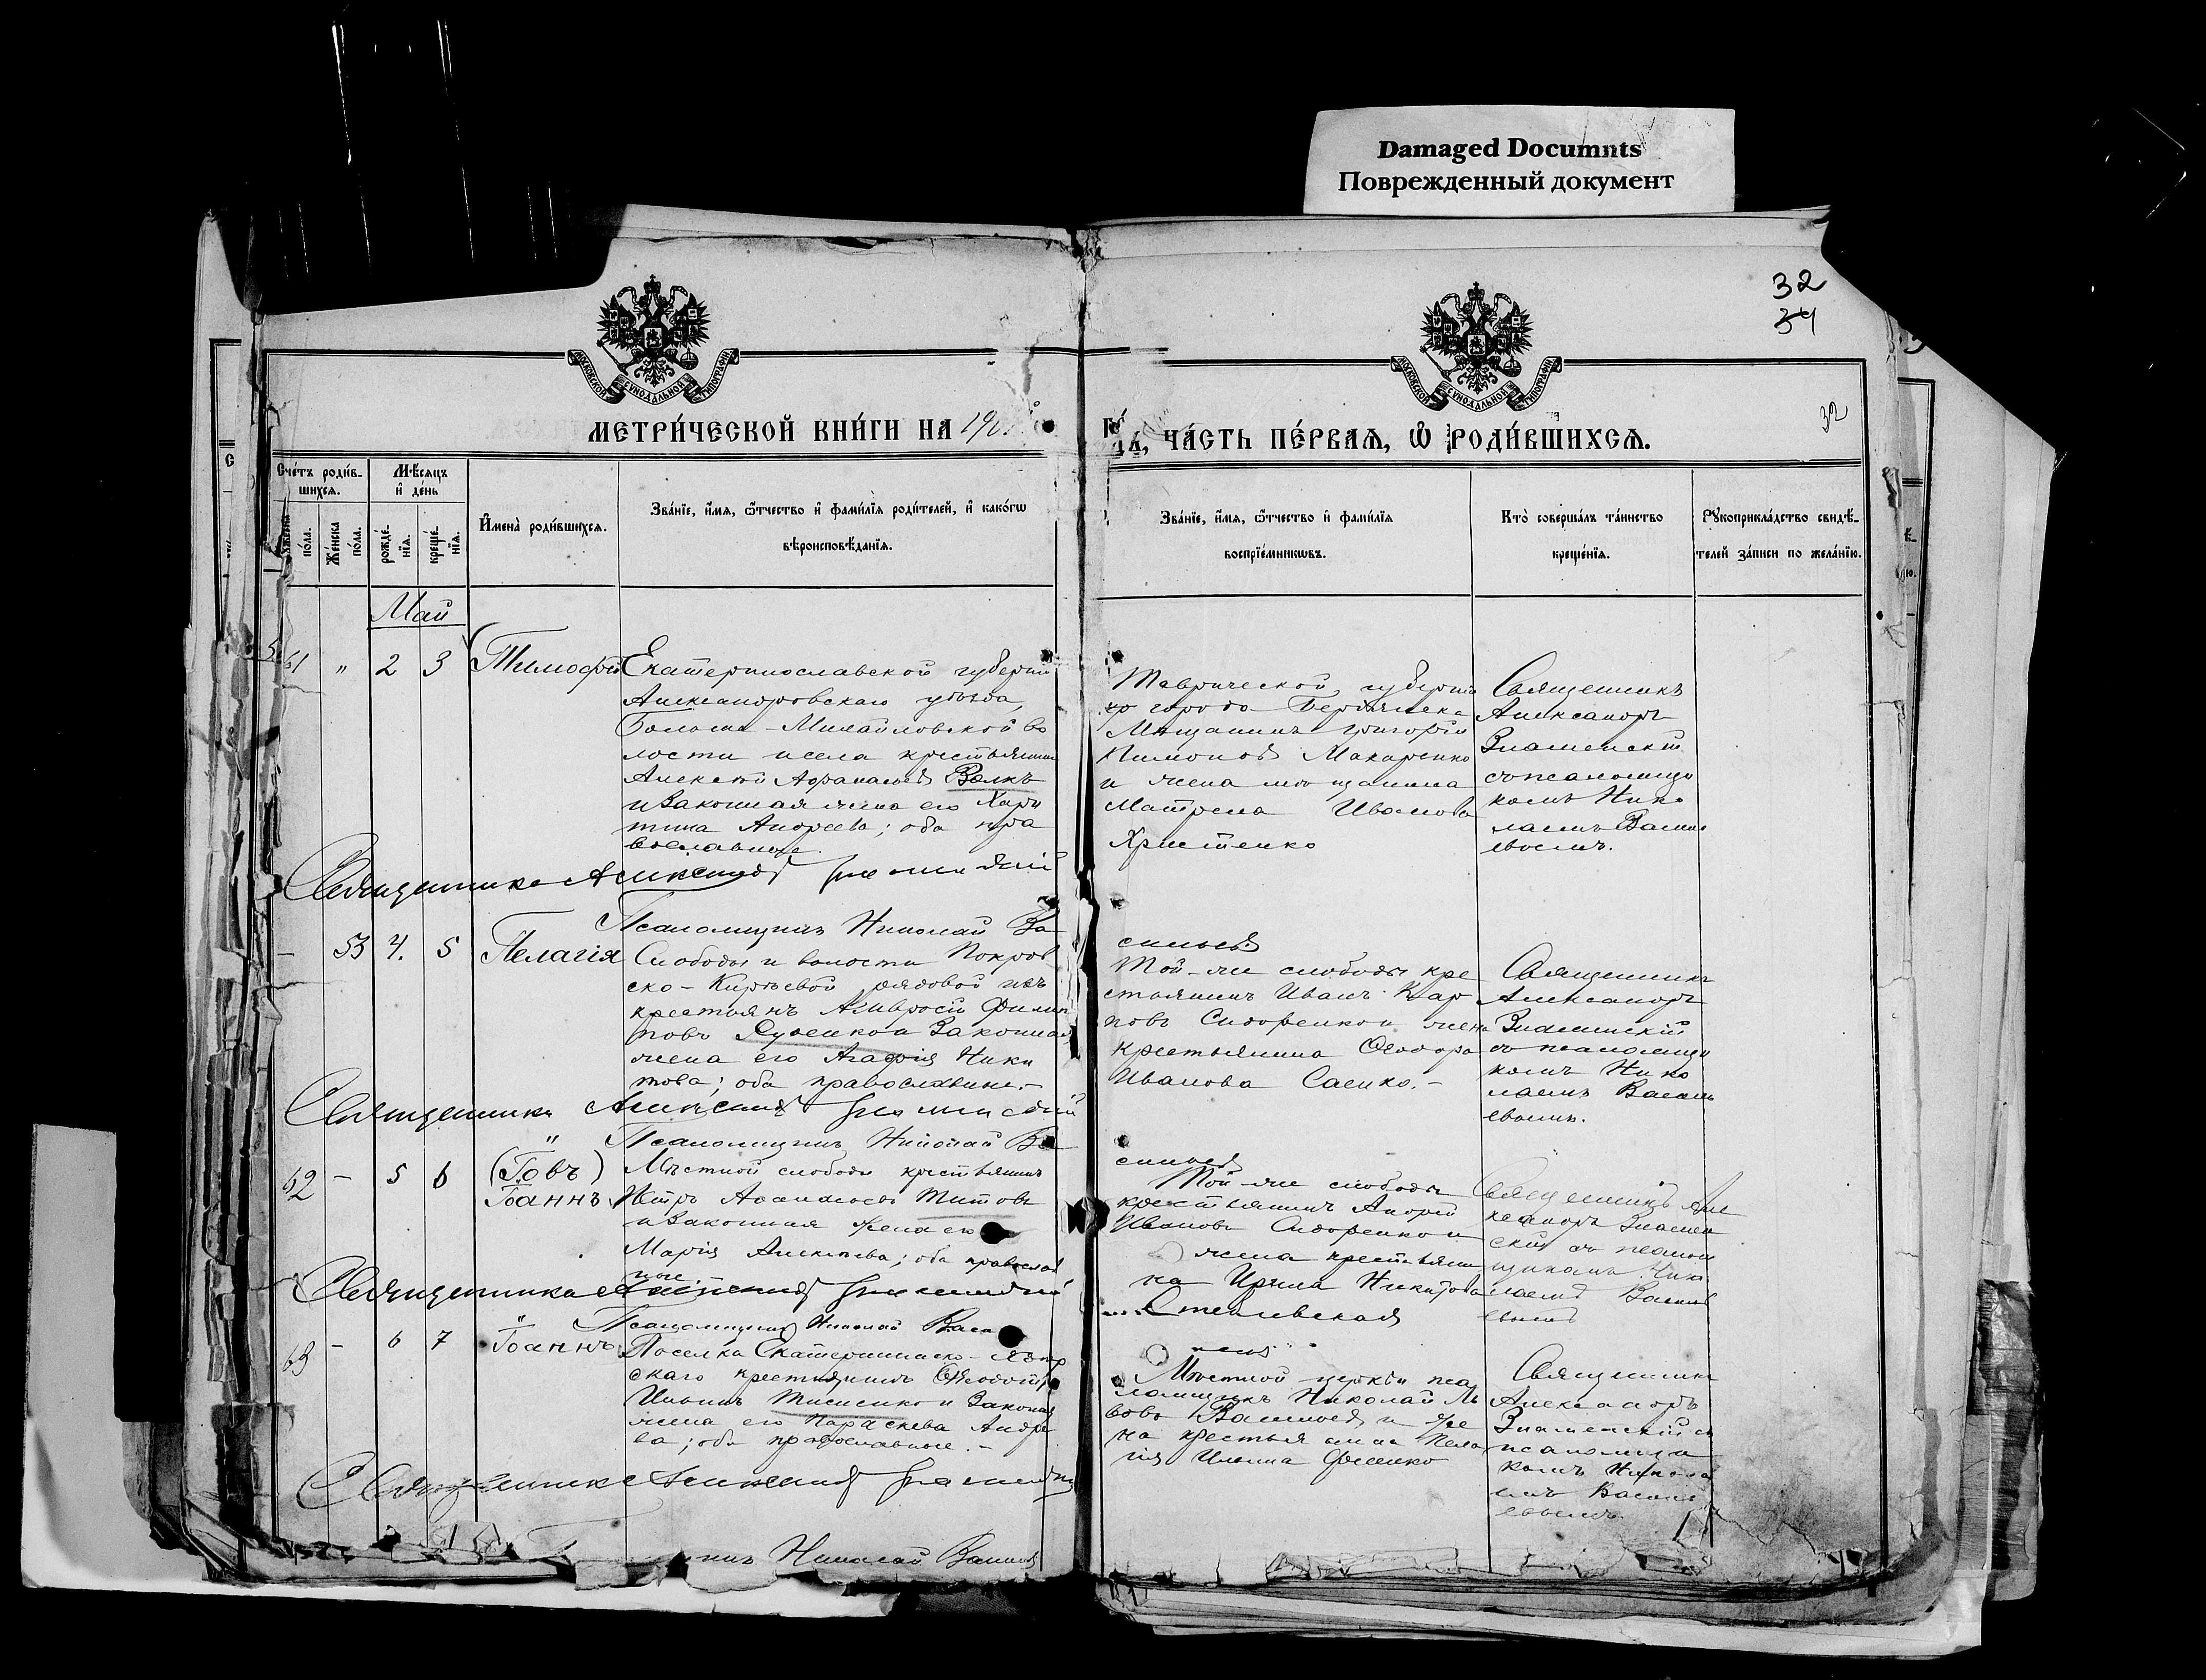 Damaged Documnts
Поврежденный документ
32
34
32
МОСКОВСКОЙ СѴНОДАЛЬНОЙ ТИПОГРАФИИ
МОСКОВСКОЙ СѴНОДАЛЬНОЙ ТИПОГРАФИИ
МЕТРИ́ЧЕСКОЙ КНИ́ГИ НА 190
ЧА́СТЬ ПЕ́РВАЯ, Ѡ РОДИ́ВШИХСЯ.
Сче́тъ роди́в-
шихся.
Мѣсяцъ
и де́нь
пола.
Же́нска
по́ла.
рожде́-
нїя.
креще́-
нїя.
Имена̀ роди́вшихся.
Зва́нїе, и́мя, ѻ́тчество и фами́лїя роди́телей, и како́гѡ
вѣроисповѣ́данїя.
Зва́нїе, и́мя, ѻ́тчество и фами́лїя
воспрїе́мникѡвъ.
Кто̀ соверша́лъ та́инство
креще́нїя.
Рукоприкла́дство свидѣ́-
телей за́писи по жела́нїю.
Май
61 " 2 3 Тимофей
Екатеринославской губернии
Александровскаго уѣзда,
Больше-Михайловской во
лости и села крестьянинъ
Алексѣй Аѳанасьевъ Волкъ
и законная жена его Хари
тина Андреева; оба пра
вославные.
Таврической губернии
города Бердянска
Мѣщанинъ Григорій
Пимоновъ Макаренко
и жена мѣщанина
Матрена Иванова
Христенко
Священникъ
Александръ
Знаменскій
съ псаломщи
комъ Нико
лаемъ Василь
евымъ.
Священникъ Александръ Знаменскій
Псаломщикъ Николай Ва
сильевъ
– 53 4. 5 Пелагія
Слободы и волости Покров
ско-Киреевой рядовой изъ
крестьянъ Амвросій Филип
повъ и Законная
жена его Агафія Ники
това; оба православные.–
Той-же слободы кре
стьянинъ Иванъ Кар
повъ Сидоренко и жена
крестьянина Ѳеодора
Иванова Саенко.–
Священникъ
Александръ
Знаменскій
съ псаломщи
комъ Нико
лаемъ Василь
евымъ.
Священникъ Александръ Знаменскій
Псаломщикъ Николай Ва
сильевъ
62 – 5 6 (Іовъ)
Іоаннъ
Мѣстной слободы крестьянинъ
Петръ Аѳанасьевъ Титовъ
и Законная жена его
Марія Алексѣева; оба православ
ные.
Той-же слободы
крестьянинъ Андрей
Ивановъ Сидоренко и
жена крестьяни
на Ирина Никитова
Священникъ Але
ксандръ Знамен
скій съ псалом
щикомъ Нико
лаемъ Василь
евымъ
Священникъ Александръ Знаменскій
Псаломщикъ Николай Васи
63 – 6 7 Іоаннъ
Поселка Екатериновско-
скаго крестьянинъ
Ильинъ и Законная
жена его Параскева Андре
ва; оба православные.–
Мѣстной церкви пса
ломщикъ Николай Ль
вовъ Васильевъ и же
на крестьянина Пела
гія Ильина
Священникъ
Александръ
Знаменскій съ
псаломщи
комъ Никола
емъ Василь
евымъ.
Священникъ Александръ Знаменскій
Николай Васильевъ